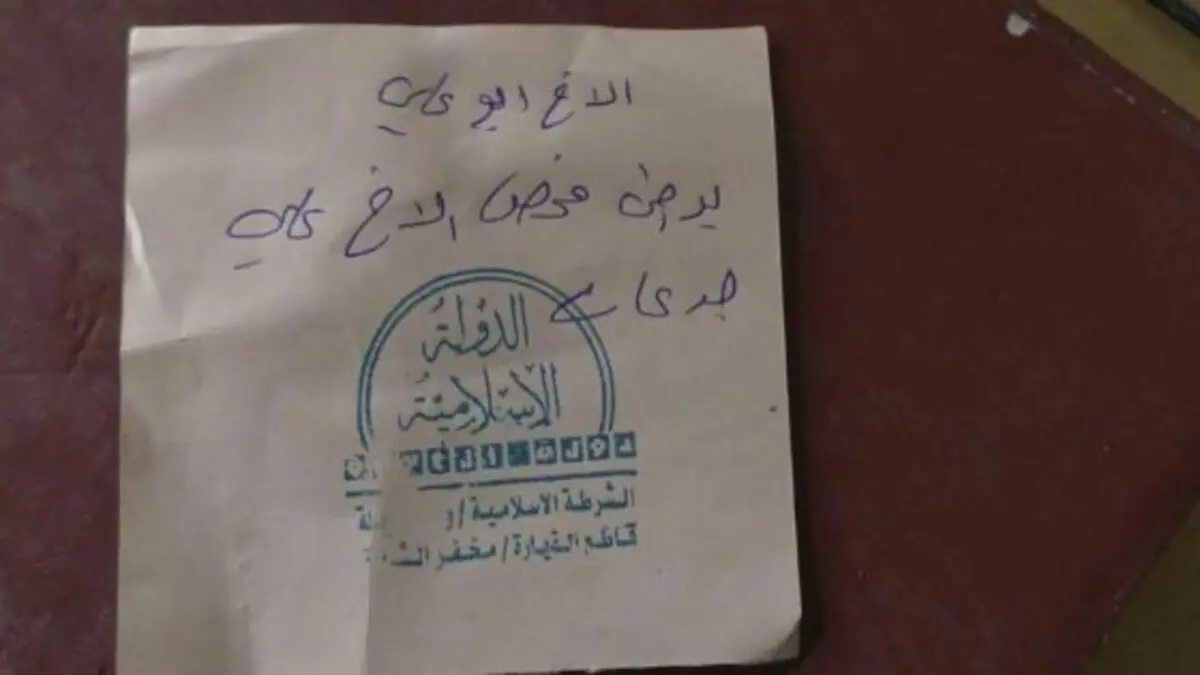 الاخ ابو علي
يرجى فحص الاخ علي
جدعان
الدولة
الإسلامية
الشرطة الاسلامية / و
قاطع القيارة / مخفر